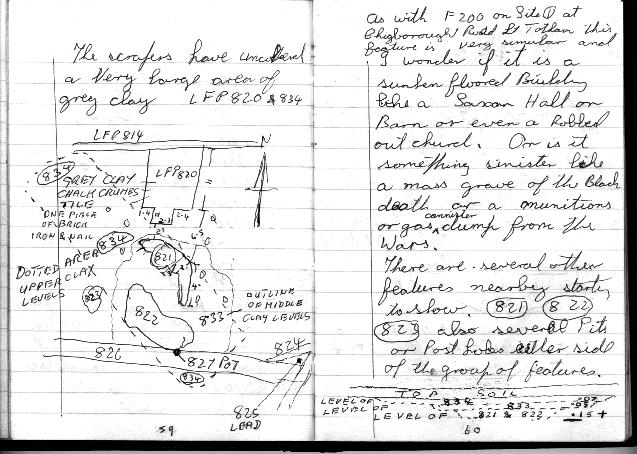 The scrapers have uncoverd
a Very large area of
grey clay LFP820 & 834
LFP 814
N
834
LFP820
GREY CLAY
CHALK CRUMBS
TILE
ONE PIECE
OF BRICK
IRON & NAIL
834
DOTTED AREA
UPPER CLAY
LEVELS
821
823
822
833
OUTLINE
OF MIDDLE
CLAY LEVELS
826
827 POT
824
834
825
LEAD
59
As with F200 on Site 1 at
Chigborough Road Lt Totham this
feature is very simular and
I wonder if it is a
sunken floored Building
like a Saxon Hall on
Barn or even a Robbed
out church. Or is it
something sinister like
a mass grave of the Black
death or a munitions
or gas cannister dump from the
Wars.
There are several other
features nearby starting
to show. 821 822
823 also several Pits
or Post holes either side
of the group of features.
TOP SOIL
LEVEL OF 834
LEVEL OF 833
LEVEL OF 821 & 822 .15+
60